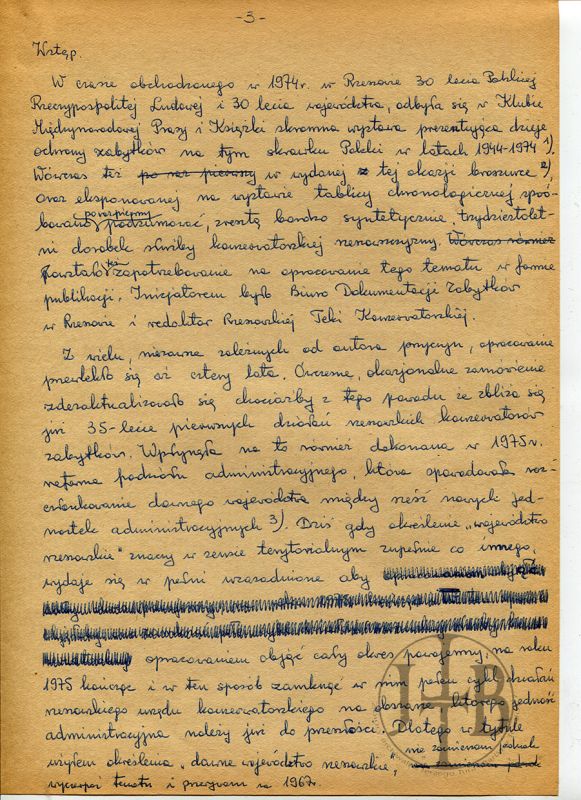 - 3 -
Wstęp.
W czasie obchodzonego w 1974r. w Rzeszowie 30 lecia Polskiej
Rzeczypospolitej Ludowej i 30 lecia województwa, odbyła się w Klubie
Międzynarodowej Prasy i Książki skromna wystawa prezentująca dzieje
ochrony zabytków na tym skrawku Polski w latach 1944-1974 1).
Wówczas też po raz pierwszy w wydanej z tej okazji broszurce 2),
oraz eksponowanej na wystawie tablicy chronologicznej spró-
bowano po raz pierwszy podsumować, zresztą bardzo syntetycznie, trzydziestolet-
ni dorobek służby konserwatorskiej rzeszowszczyzny. Wówczas również
Powstało też zapotrzebowanie na opracowanie tego tematu w formie
publikacji. Inicjatorem było Biuro Dokumentacji Zabytków
w Rzeszowie i redaktor Rzeszowskiej Teki Konserwatorskiej.
Z wielu, niezawsze zależnych od autora przyczyn, opracowanie
przewlekło się aż cztery lata. Ówczesne, okazjonalne zamówienie
zdezaktualizowało się chociażby z tego powodu że zbliża się
już 35-lecie pierwszych działań rzeszowskich konserwatorów
zabytków. Wpłynęła na to również dokonana w 1975r.
reforma podziału administracyjnego, która spowodowała roz-
członkowanie dawnego województwa między sześć nowych jed-
nostek administracyjnych 3). Dziś gdy określenie „województwo
rzeszowskie" znaczy w sensie terytorialnym zupełnie co innego,
wydaje się w pełni uzasadnione aby
opracowaniem objąć cały okres powojenny, na roku
1975 kończąc i w ten sposób zamknąć w nim pełen cykl działań
rzeszowskiego urzędu konserwatorskiego na obszarze którego jedność
administracyjna należy już do przeszłości. Dlatego w tytule
użyłem określenia „dawne województwo rzeszowskie",
nie zamierzam jednak
wyczerpać tematu i przerywam na 1967.